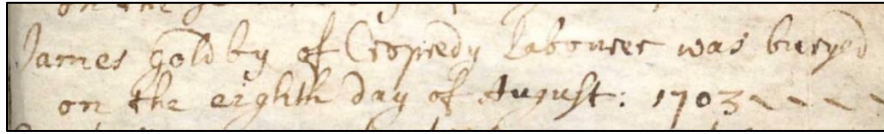 James goldby of Cropredy Labourer was buryed
on the eighth day of August: 1703